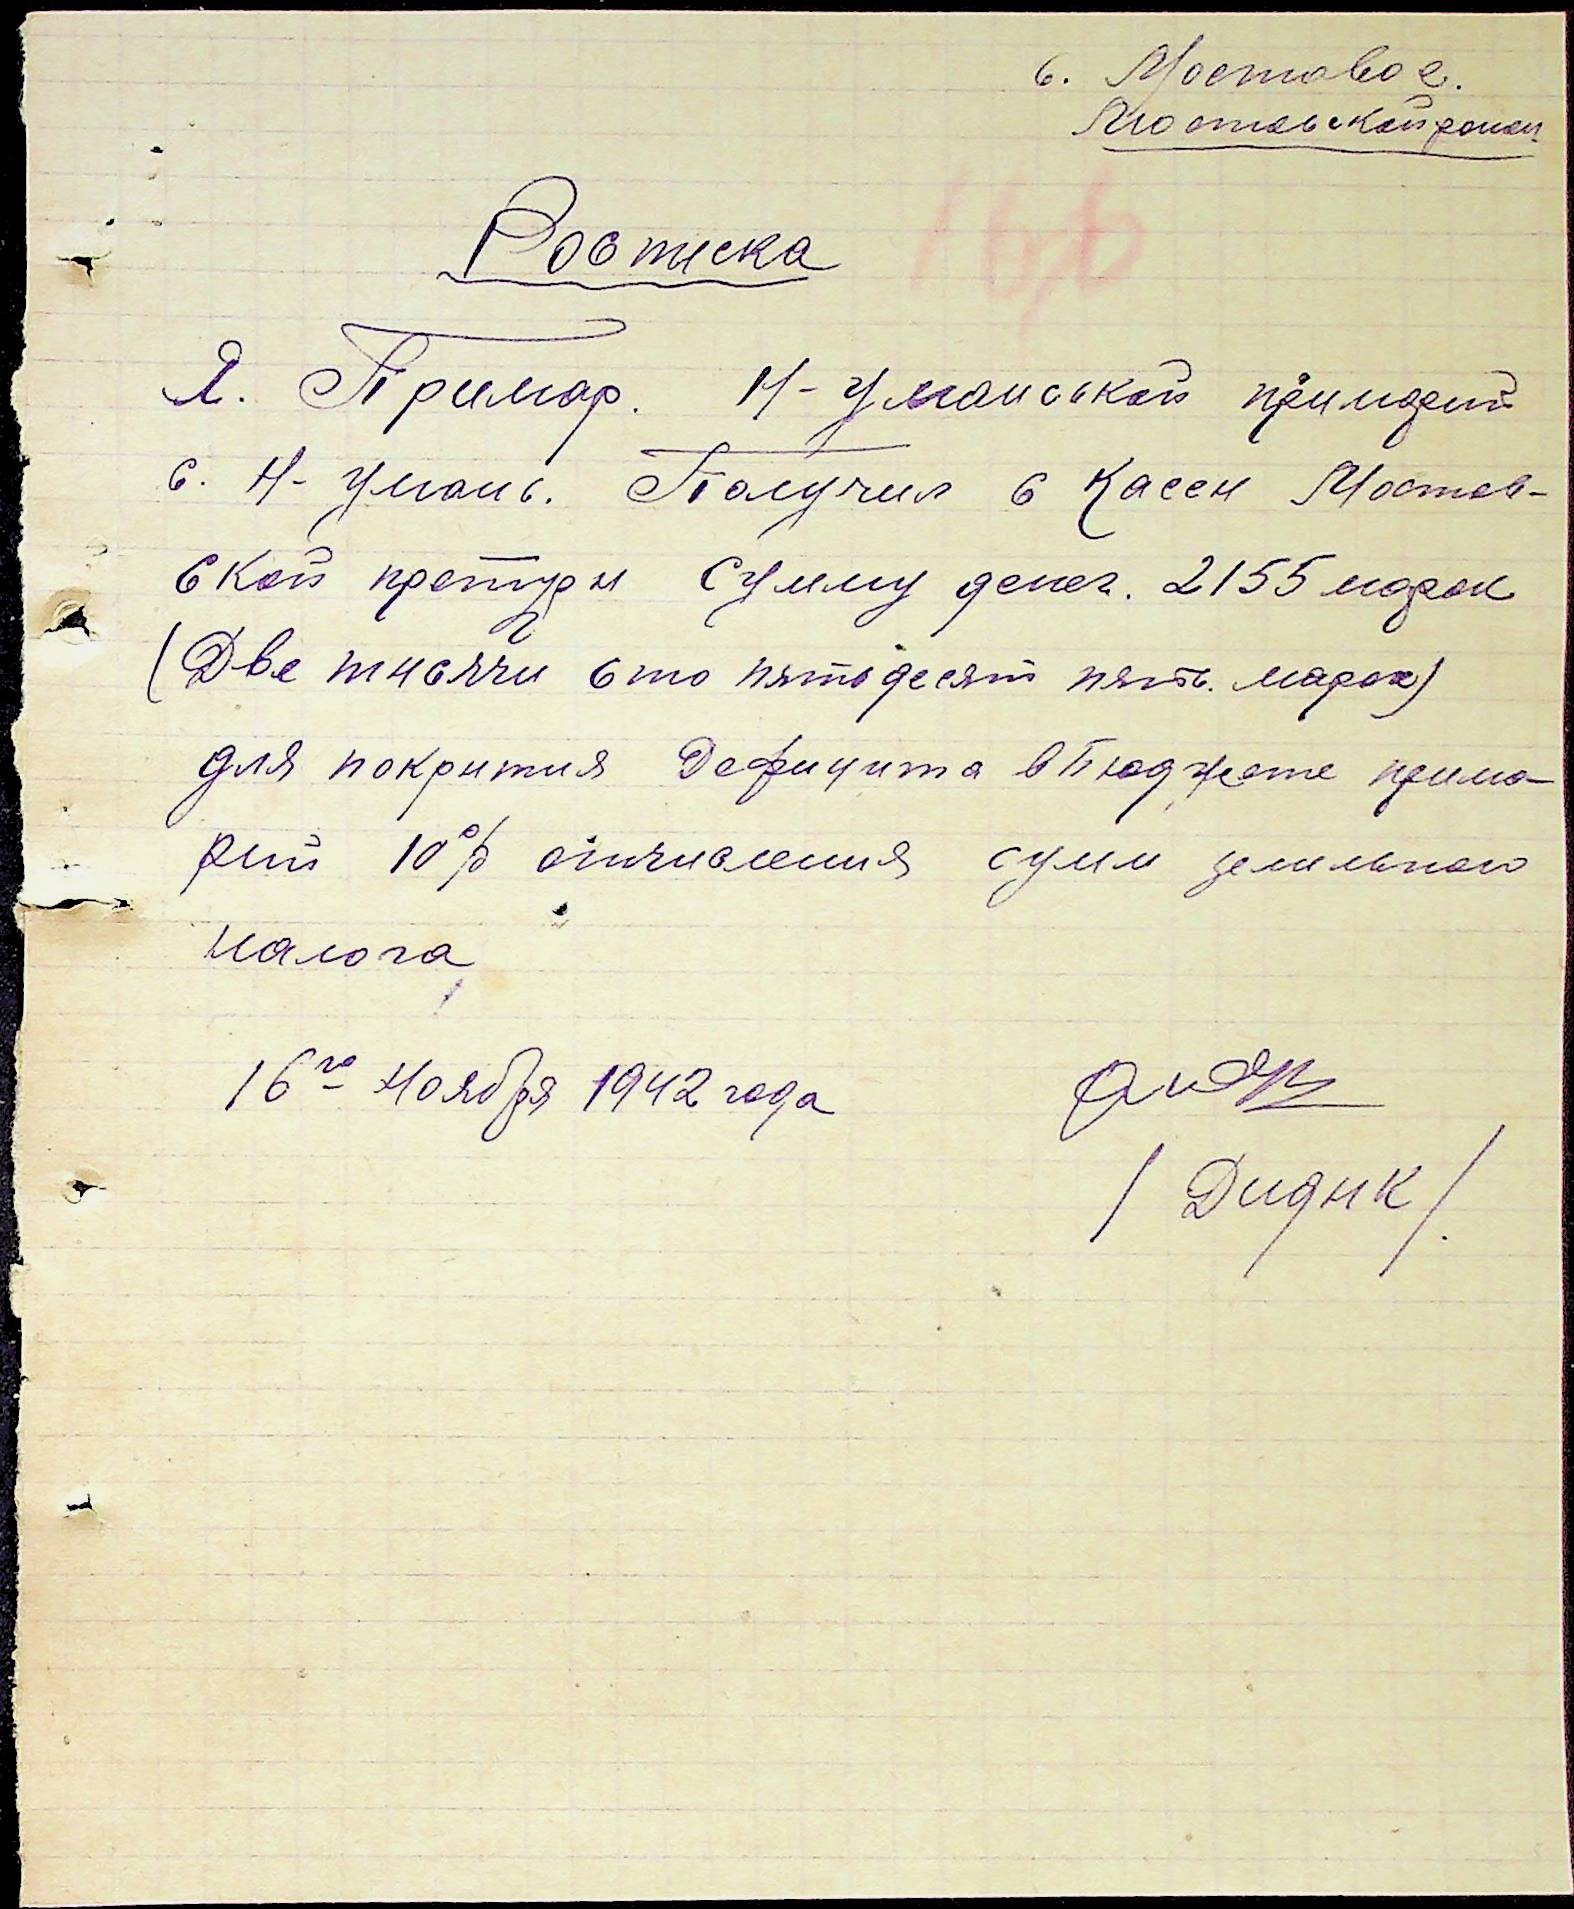 с. Мостовое.
Мостовской район
Росписка
Я. Примар. Н-Уманськой примарий
с. Н-Умань. Получил с кассы Мостов-
ской претуры сумму денег. 2155 марок
(Две тысячи сто пятьдесят пять. марок)
для покрытия Дефицита в Бюджете прима-
рий 10% отчисления сумм земельного
налога
16го ноября 1942 года
/ Дидык /.